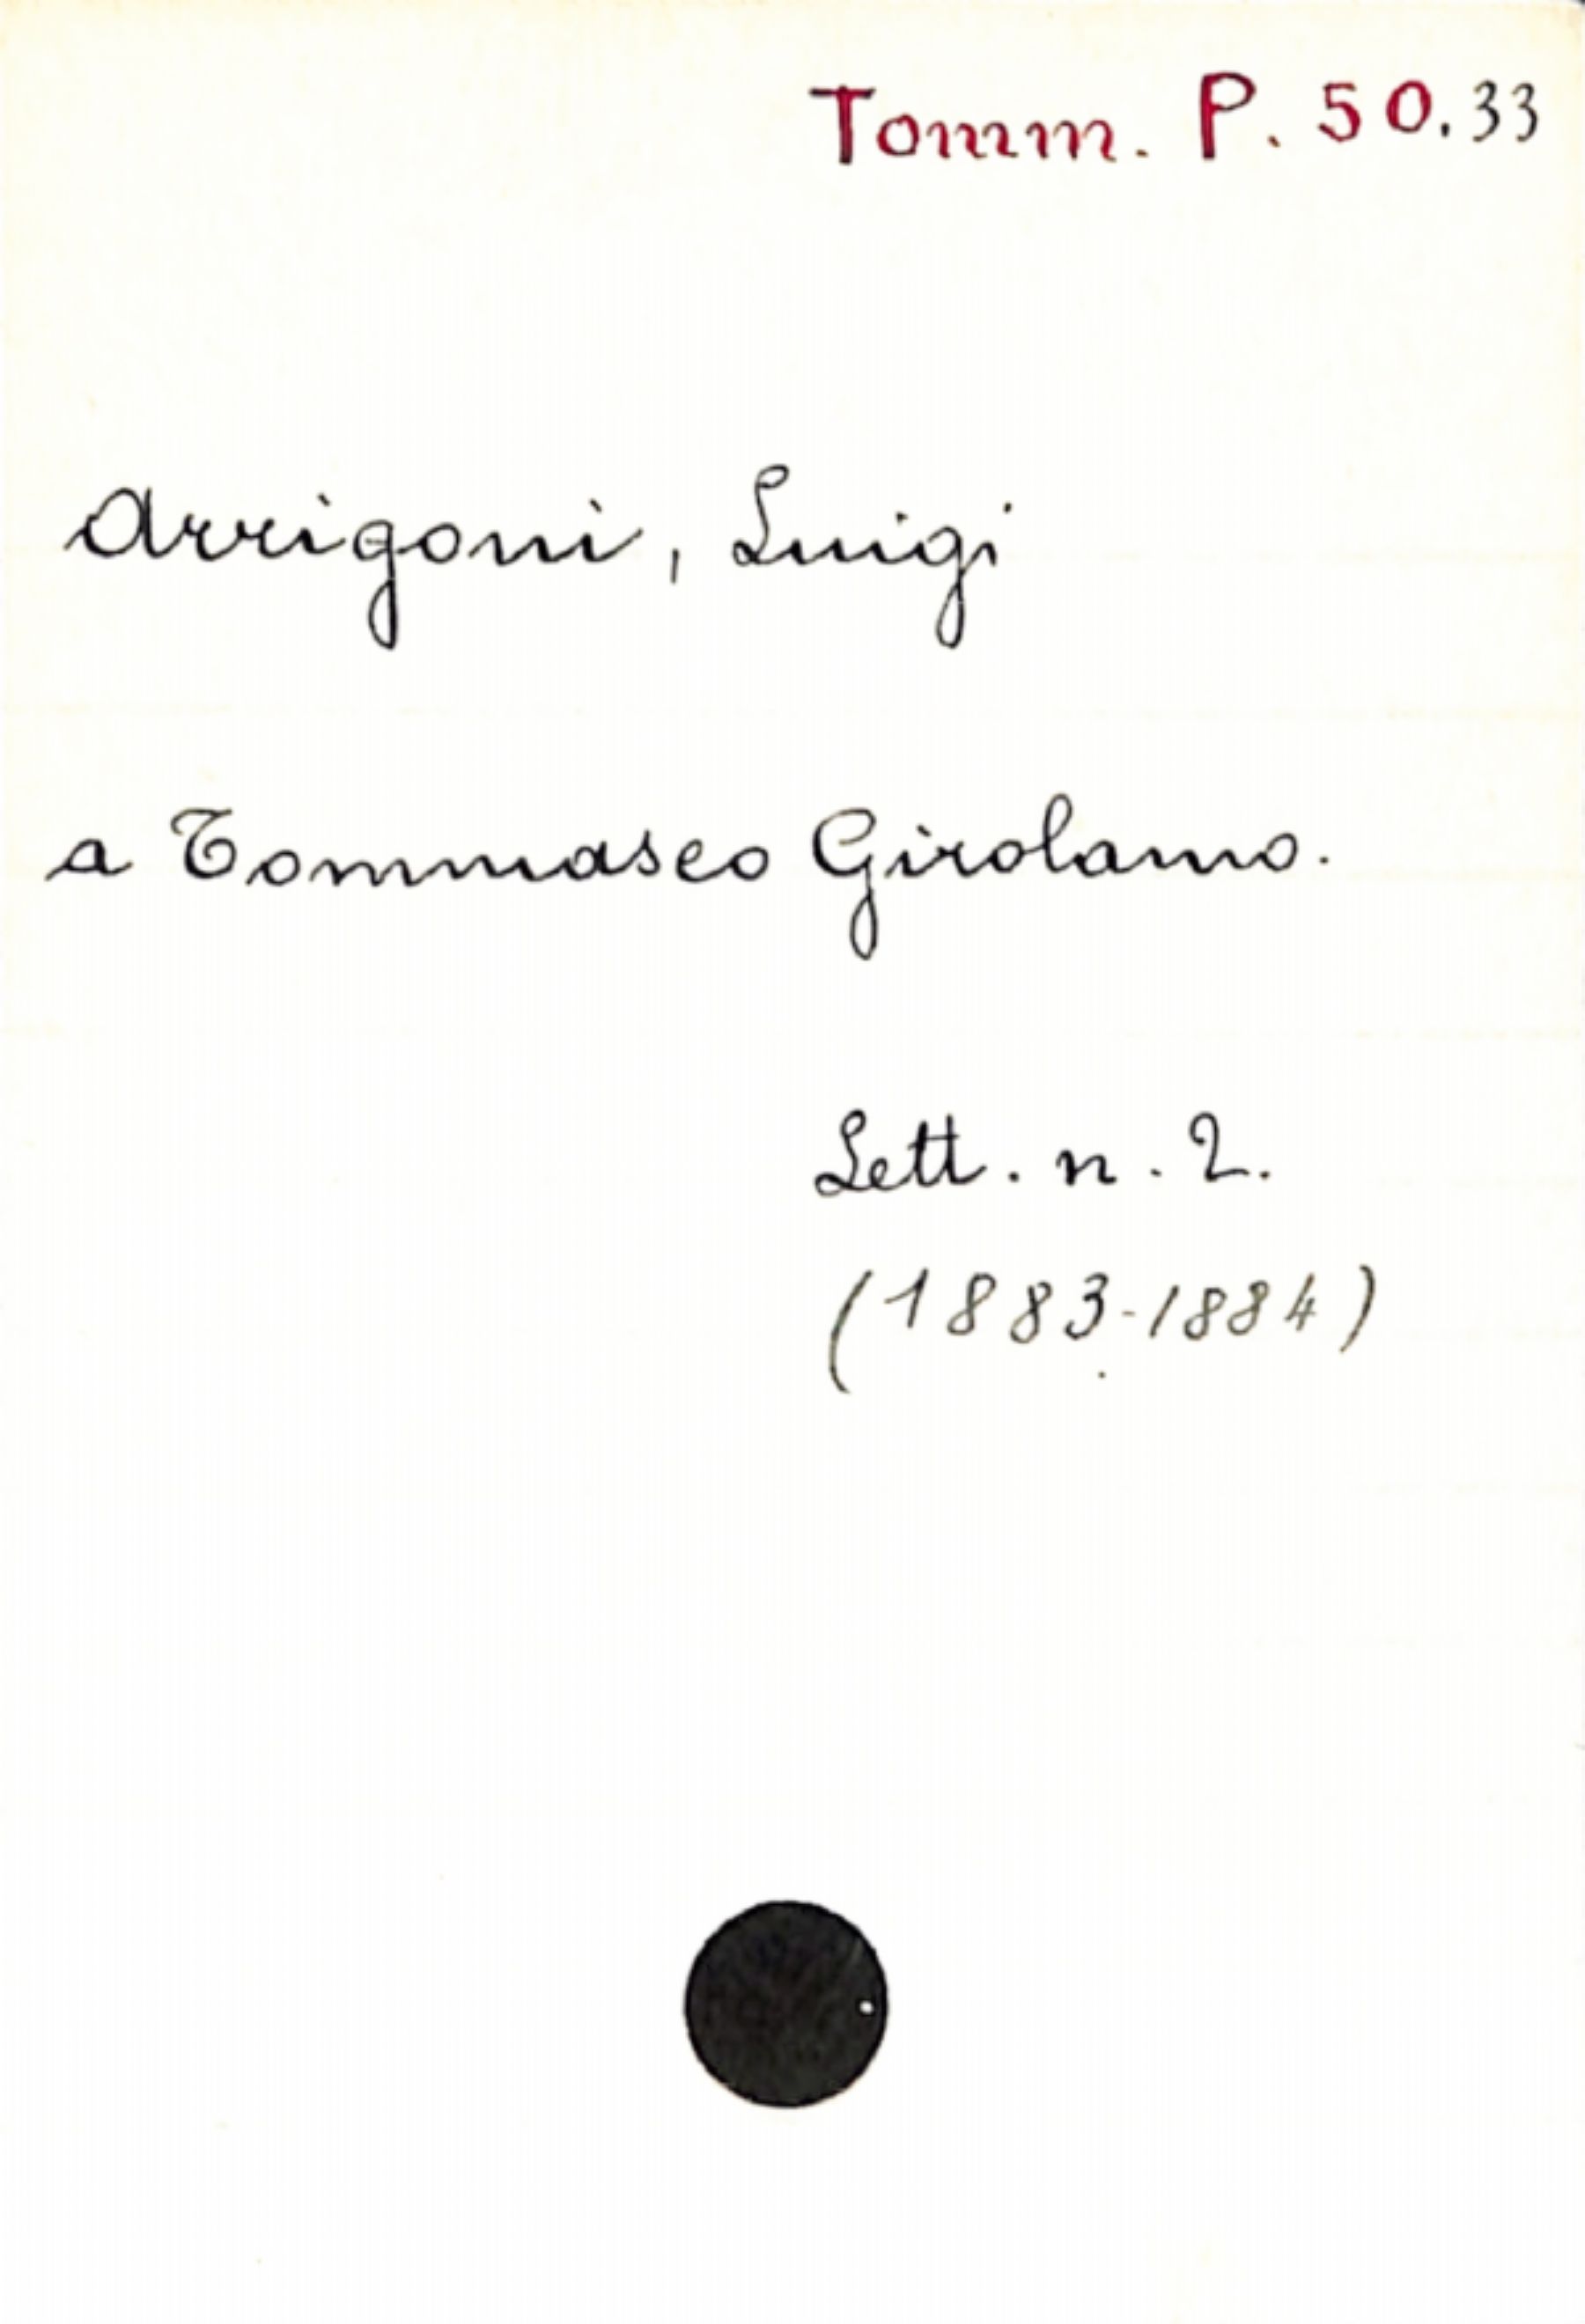 Tomm. P. 50.33
Arrigoni, Luigi
a Tommaseo Girolamo.
Lett. n. 2.
(1883-1884)